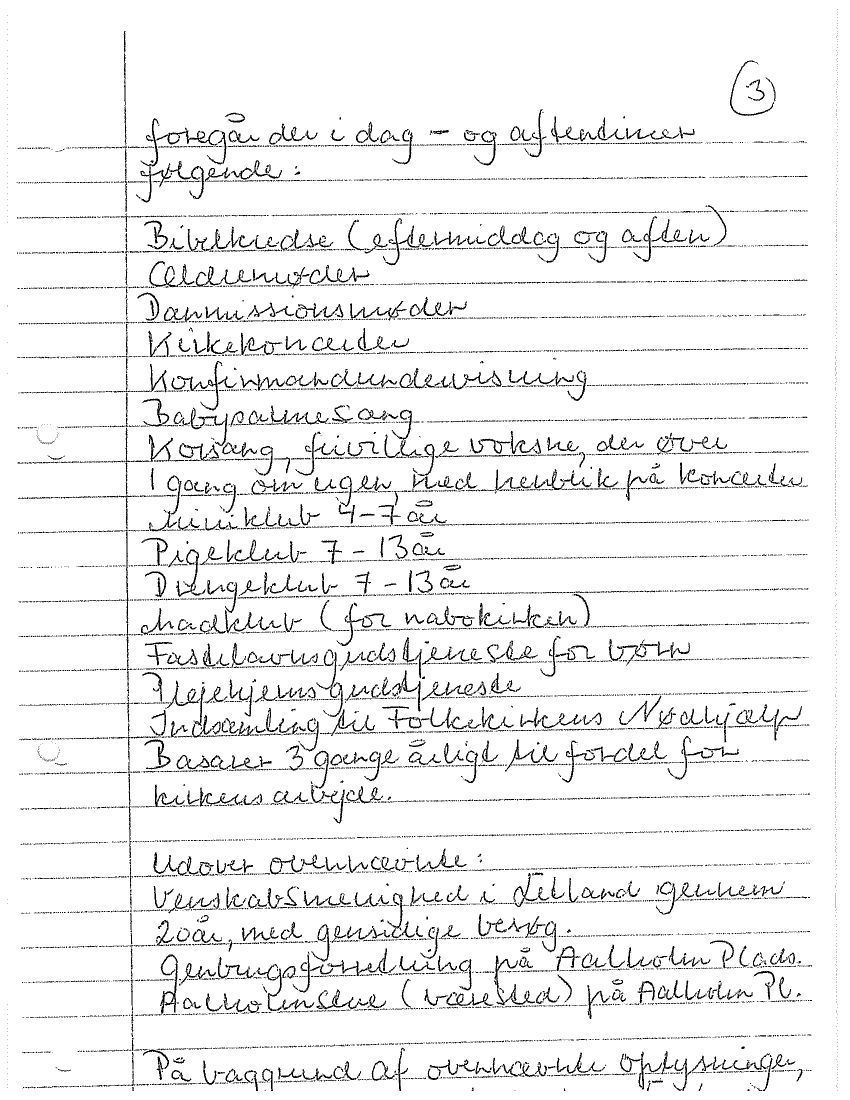 3
foregår der i dag - og aftentimer
følgende:
Bibelkredse (eftermiddag og aften)
Ældremøder
Danmissionsmøder
Kirkekoncerter
Konfirmandundervisning
Babysalmesang
Korsang, frivillige voksne, der øver
1 gang om ugen, med henblik på koncerter
Miniklub 4-7 år
Pigeklub 7 - 13 år
Drengeklub 7 - 13 år
Madklub (for nabokirken)
Fastelavnsgudstjeneste for børn
Plejehjemsgudstjeneste
Indsamling til Folkekirkens Nødhjælp
Basarer 3 gange årligt til fordel for
kirkens arbejde.
Udover ovennævnte:
Venskabsmenighed i Letland gennem
20 år, med gensidige besøg.
Genbrugsforretning på Aalholm Plads.
Aalholmstue (værested) på Aalholm Pl.
På baggrund af ovennævnte oplysninger,